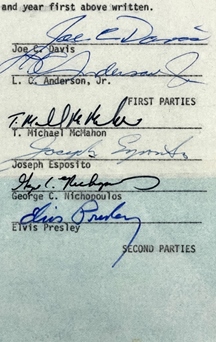 and year first above written.
Joe C Davis
Joe C. Davis
L C Anderson Jr
L. C. Anderson, Jr.
FIRST PARTIES
T. Michael McMahon
T. Michael McMahon
Joseph Esposito
Joseph Esposito
George C. Nichopoulos
Elvis Presley
Elvis Presley
SECOND PARTIES